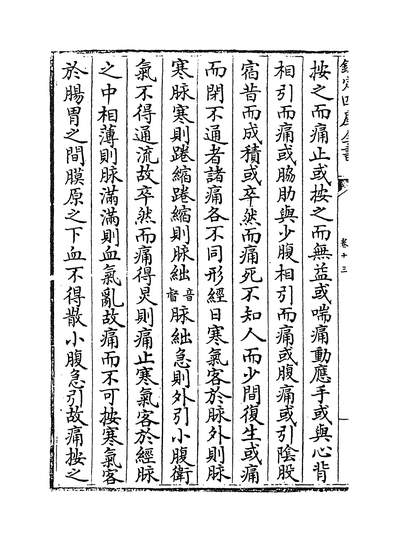 欽定四庫全書
卷十三
按之而痛止或按之而無益或喘痛動應手或與心背
相引而痛或脇肋與少腹相引而痛或腹痛或引陰股
宿昔而成積或卒然而痛死不知人而少間復生或痛
而閉不通者諸痛各不同形經曰寒氣客於脉外則脉
寒脉寒則踡縮踡縮則脉絀音㫼脉絀急則外引小腹衛
氣不得通流故卒然而痛得炅則痛止寒氣客於經脉
之中相薄則脉滿滿則血氣亂故痛而不可按寒氣客
於腸胃之間膜原之下血不得散小腹急引故痛按之